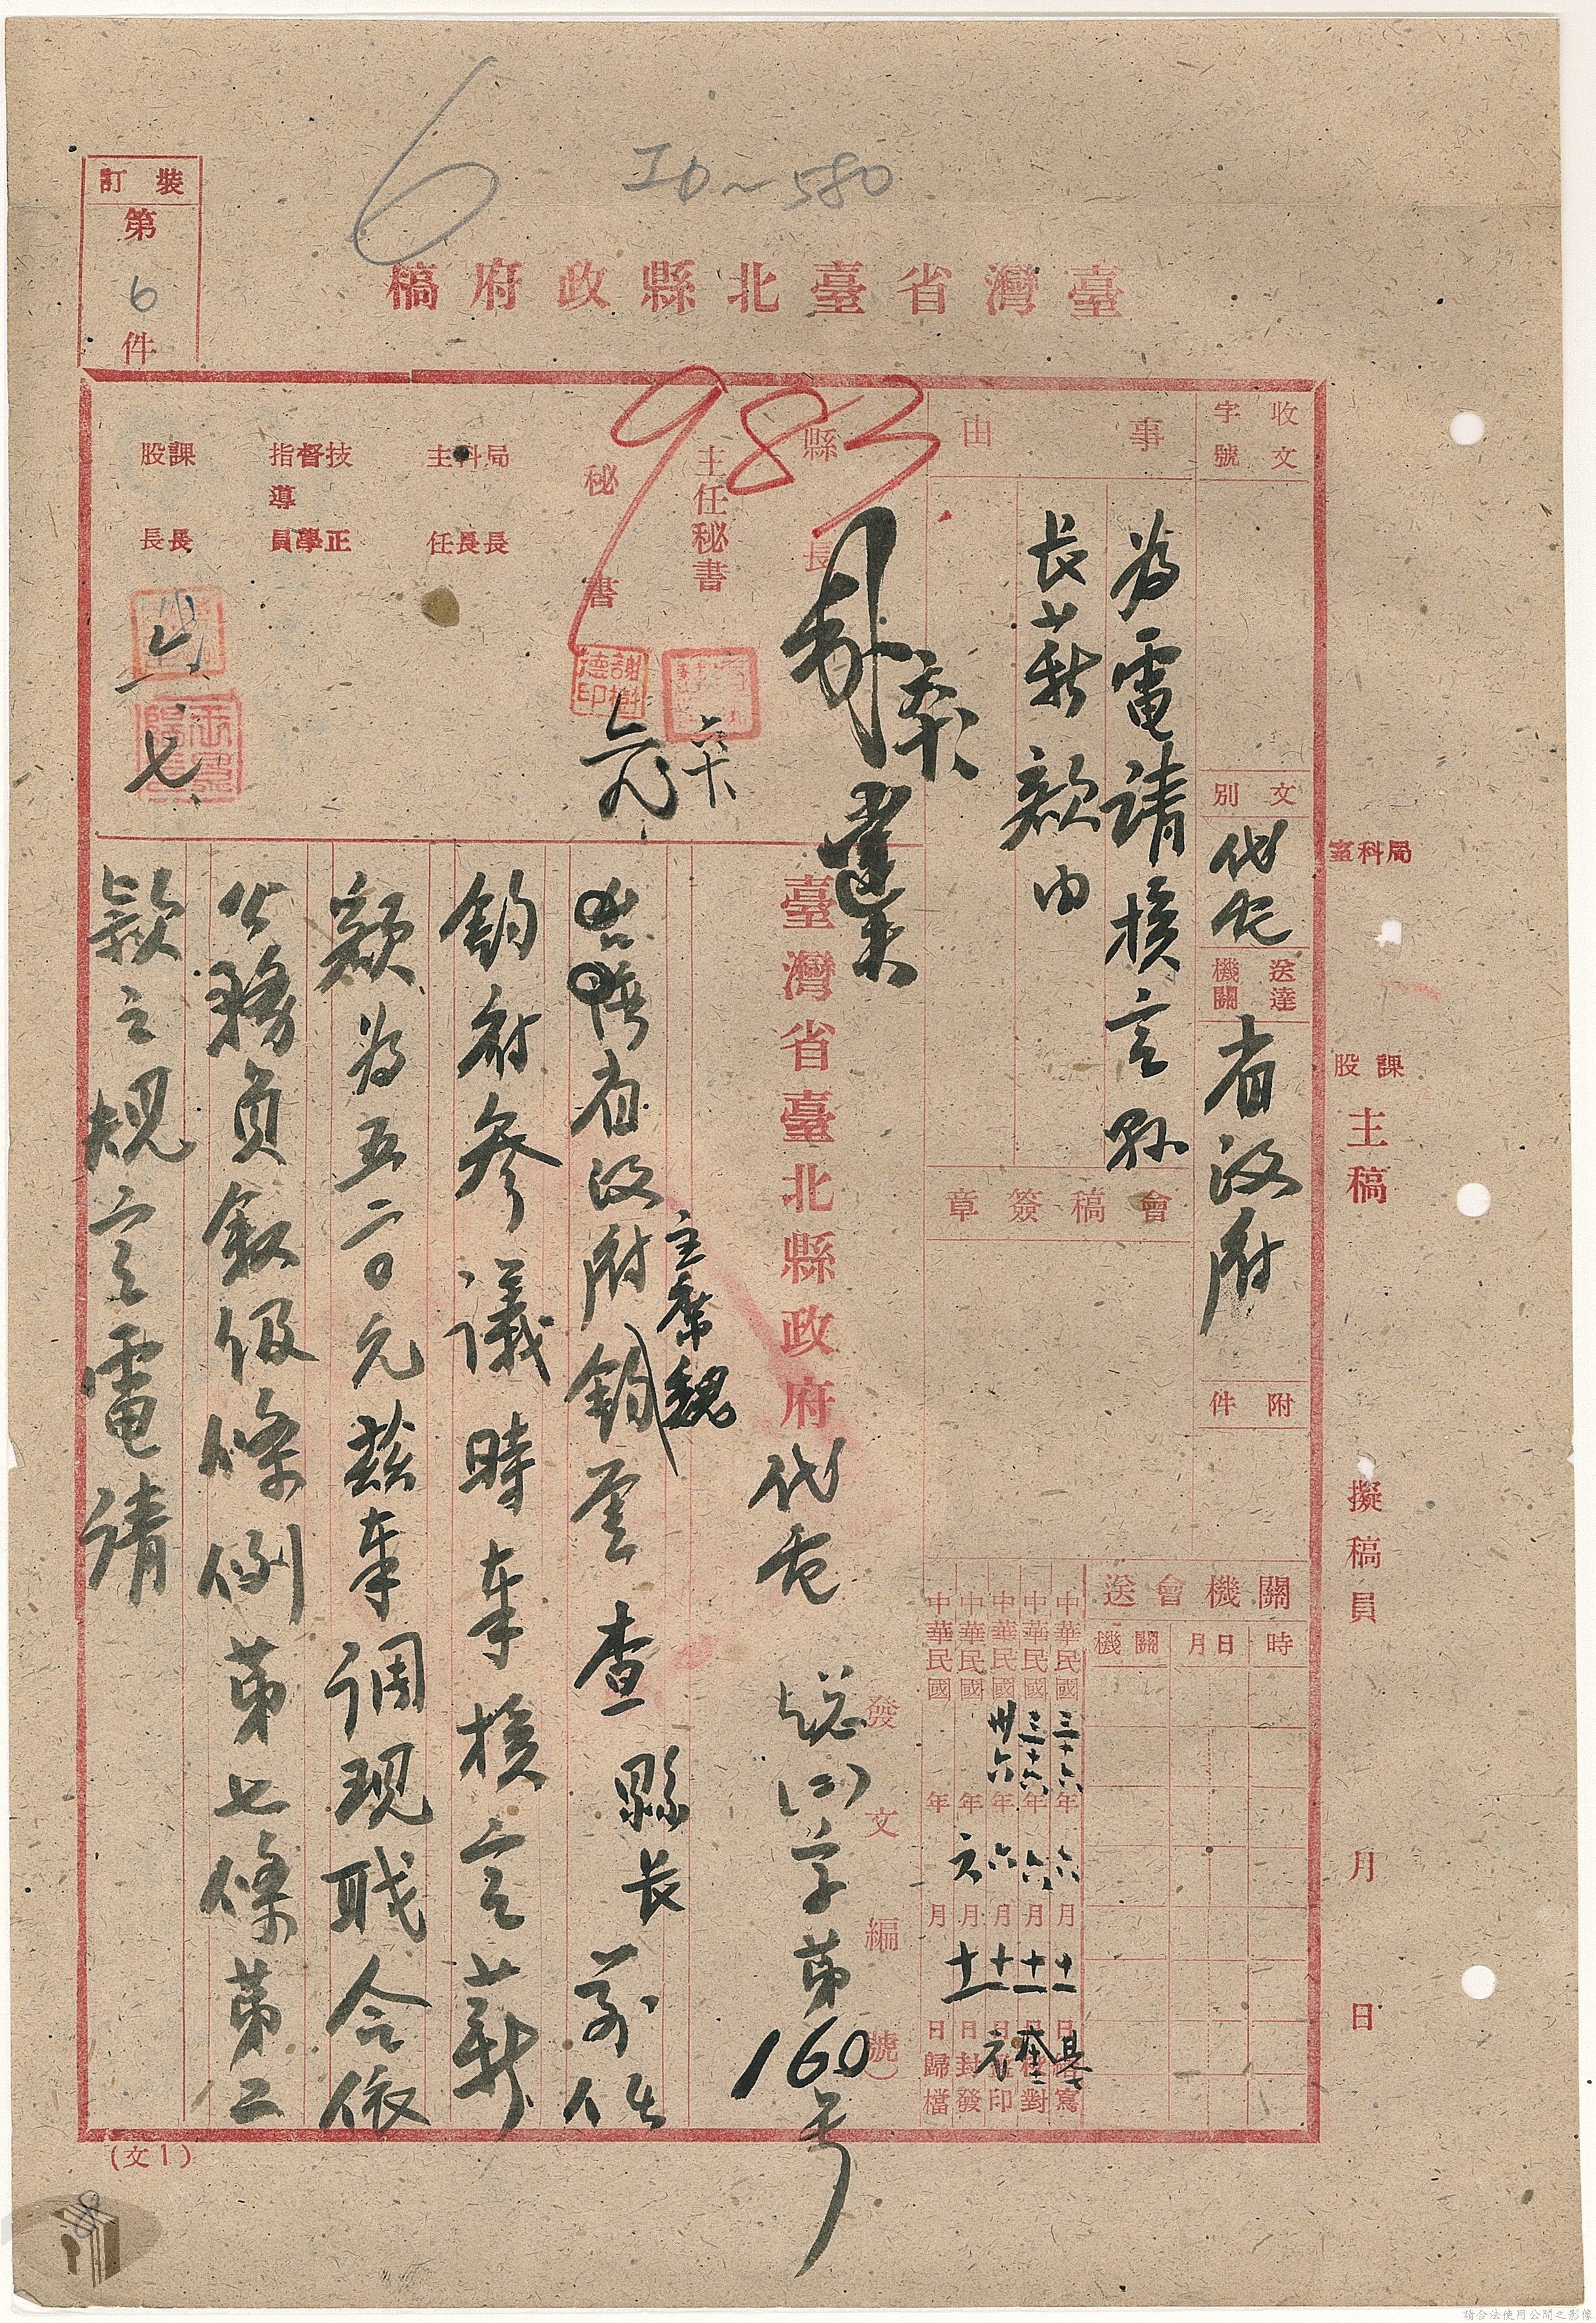 6 ID~580
裝訂
第
6
件
臺灣省臺北縣政府稿
收文
字號
文別
代電
送達機關
省政府
附件
事由
為電請核定縣
長薪額由
會稿簽章
送會機關
機關
月日
時
中華民國三十六年六月十一日繕寫
中華民國三十六年六月十一日校對
中華民國卅六年六月十一日蓋印
中華民國 年六月十一日封發
中華民國 年 月 日歸檔
縣長
983
主任秘書
六十
秘書
謝樹德印
局科主
長長任
技督指導
正學員
課股
長長
六 七
臺灣省臺北縣政府代電
發文編號)
總(二)字第160号
主席魏
省政府鈞鑒查縣長前任
鈞府參議時奉核定薪
額為五二〇元茲奉調現職合依
公務員敘級條例第七條第二
款之規定電請
(文1)
局科室
課股
主稿
擬稿員
月
日
請合法使用公開之影像